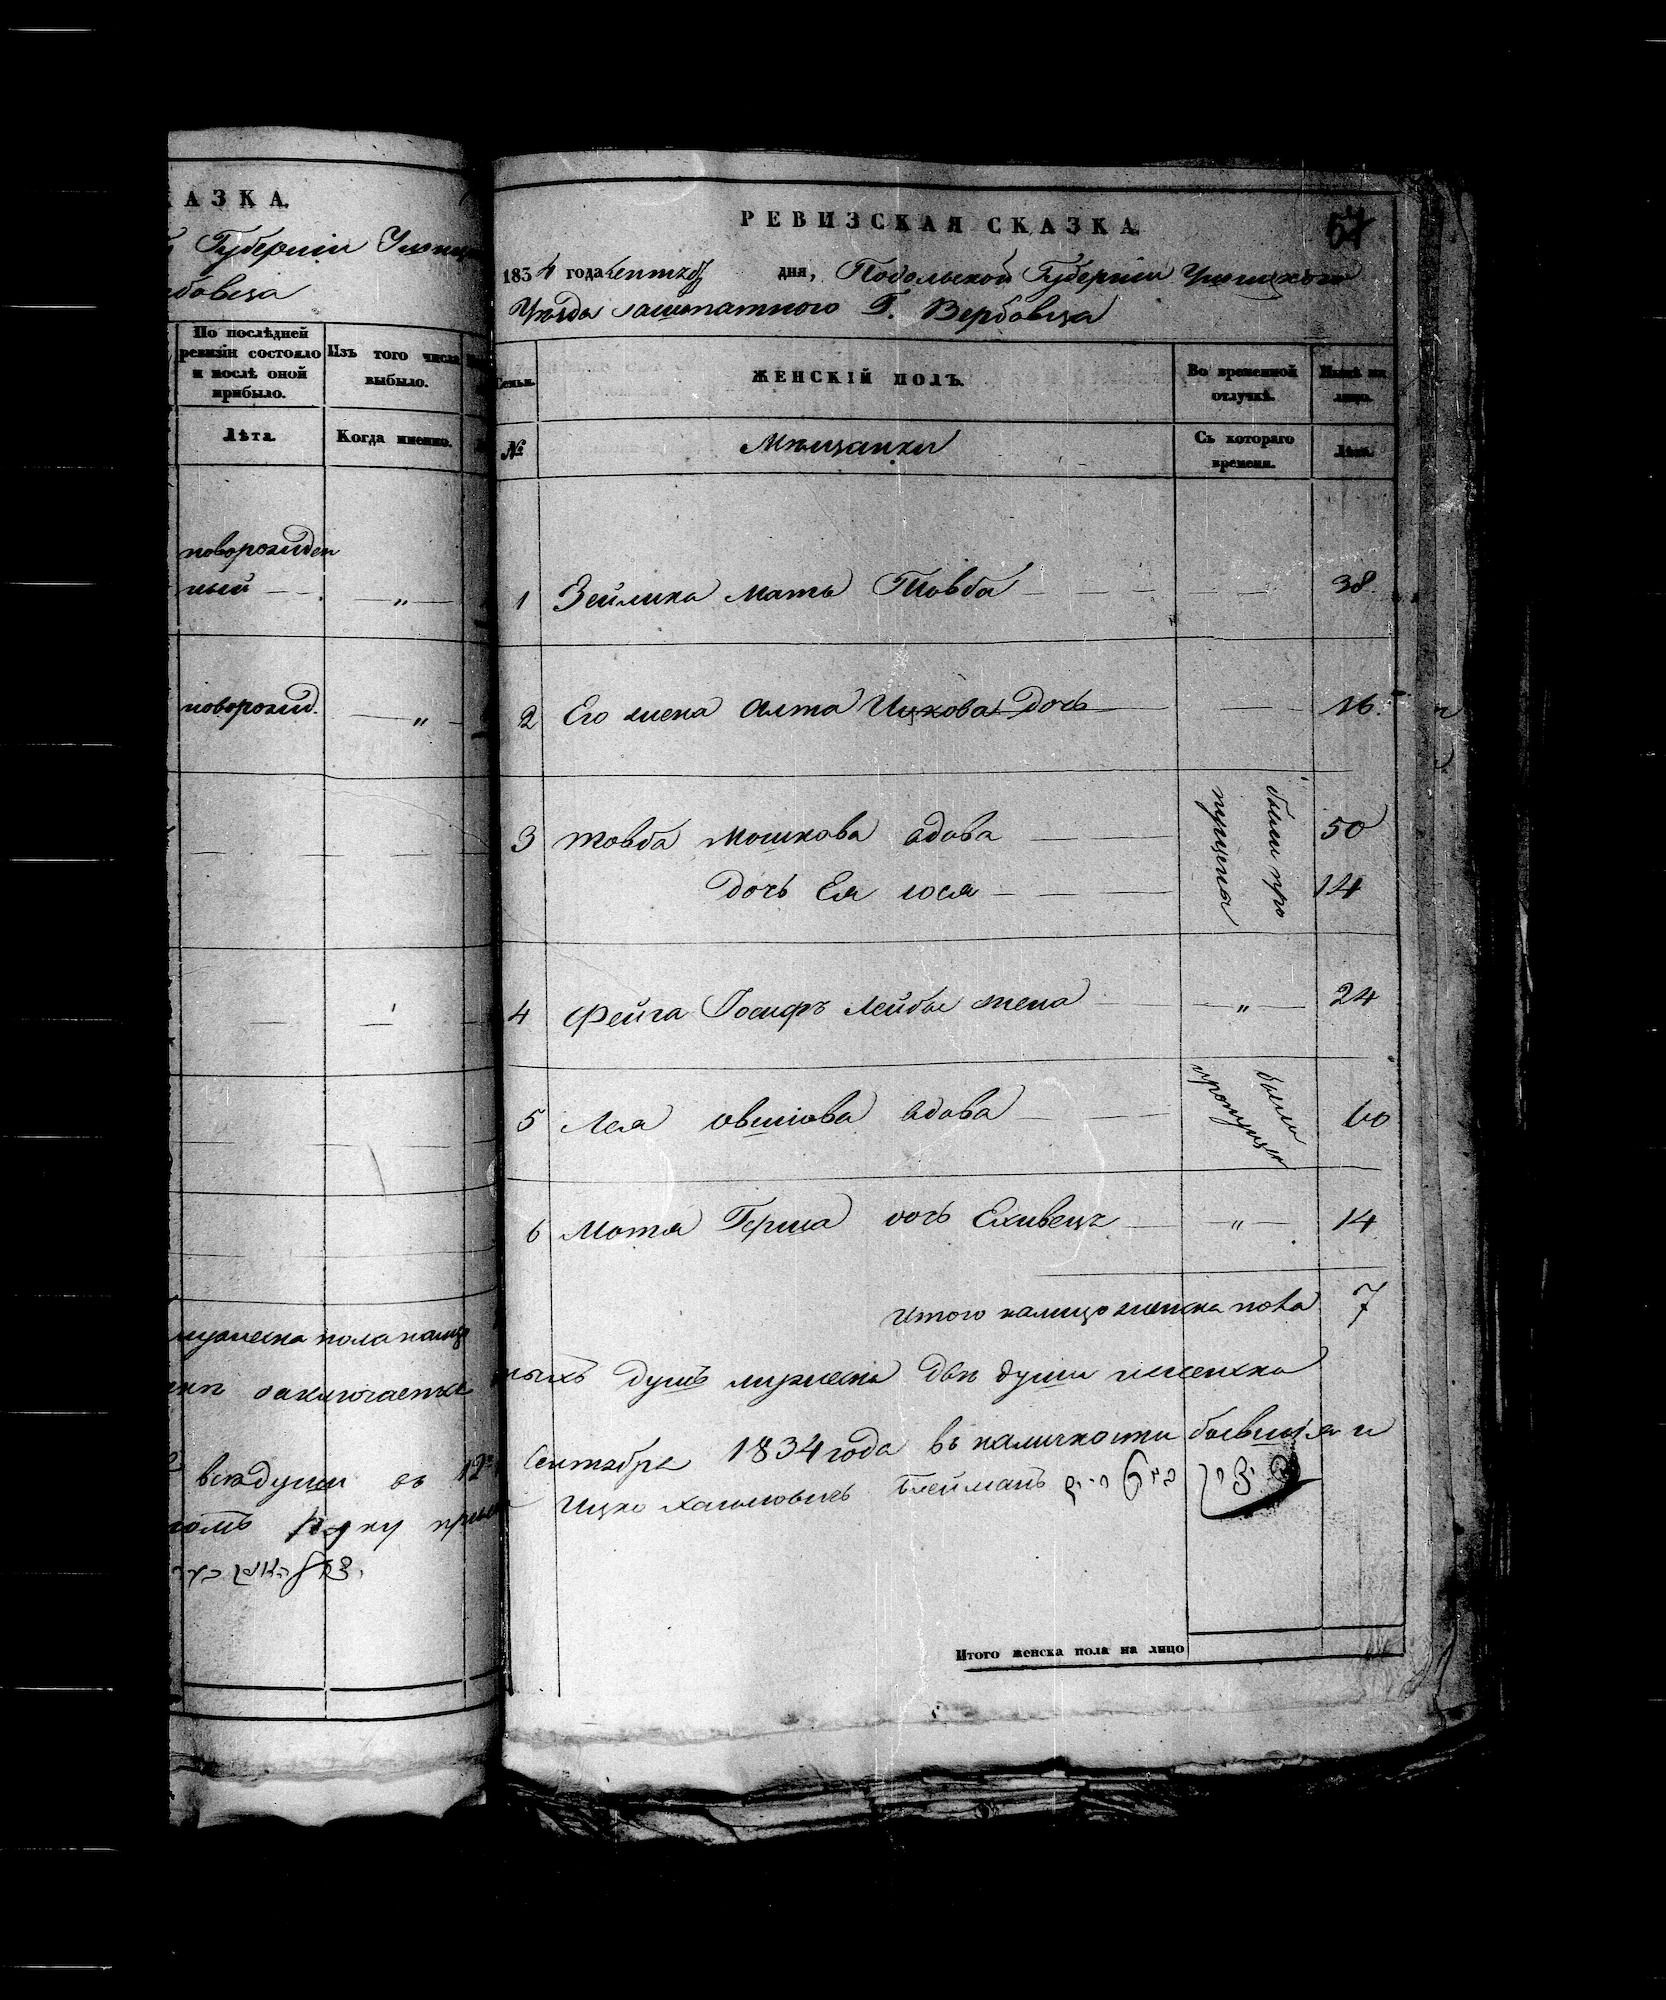 КАЗКА.
Губерніи Ушиц
рбовца
По послѣдней ревизіи состояло и послѣ оной прибыло.
Изъ того числа выбыло.
Лѣта.
Когда именно.
новорожден
ный — "
новорожд. — "
мужеска пола налиц
заключается
всѣ души въ 12
РЕВИЗСКАЯ СКАЗКА.
57
1834 года Сентяб дня, Подольской Губерніи Ушицкого
Уѣзда заштатного Г. Вербовца
Семьи.
ЖЕНСКІЙ ПОЛЪ.
Во временной отлучкѣ.
Нынѣ на лицо.
№
Мѣщанки
Съ котораго времени.
Лѣта.
1 Зейлика мать Товба — 38
2 Его жена Алта Ицкова Дочь — 16
3 Товба Мошкова вдова — 50
Дочь Ея Хося — 14
были про
пущена
4 Фейга Іосифъ Лейбы жена — " — 24
5 Лея Овшіова вдова — 60
были
пропущен
6 Мотя Герша дочь — " — 14
Итого налицо женска пола 7
ныхъ душъ мужеска двѣ души женска
Сентября 1834 года въ наличности бывшія и
Ицко Хаимовичъ
Итого женска пола на лицо